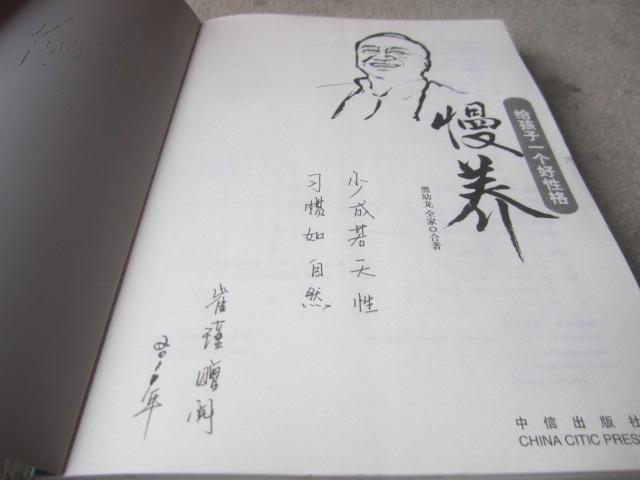 给孩子一个好性格
慢养
黑幼龙 全家◎合著
少成若天性
习惯如自然
中信出版社
CHINA CITIC PRESS